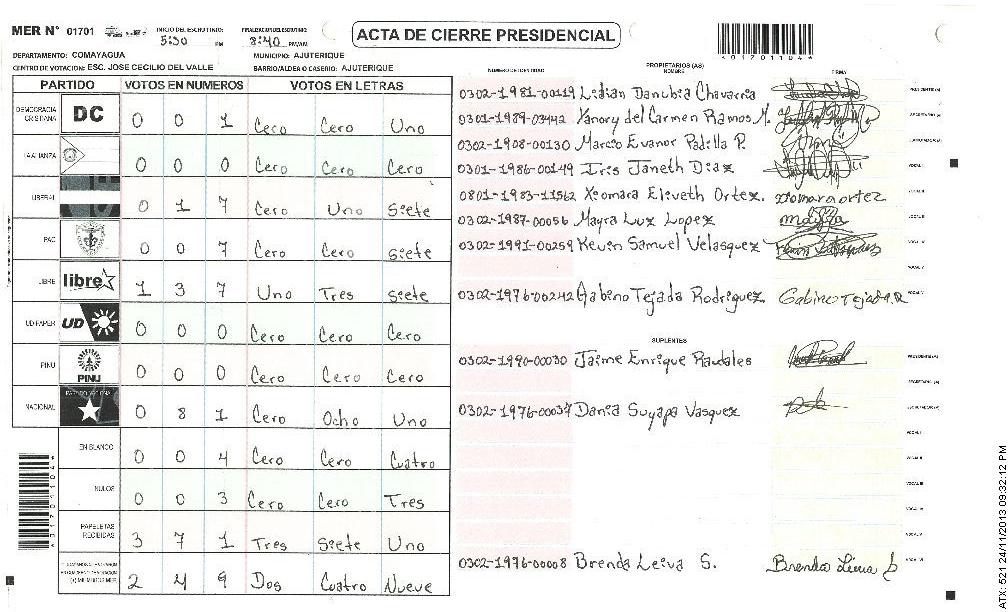 MER N° 01701 INICIO DEL ESCRUTINIO: 5:30 PM FINALIZACION DEL ESCRUTINIO: 8:40 PM/AM
ACTA DE CIERRE PRESIDENCIAL
*01701104*
DEPARTAMENTO: COMAYAGUA MUNICIPIO: AJUTERIQUE
CENTRO DE VOTACION: ESC. JOSE CECILIO DEL VALLE BARRIO/ALDEA O CASERIO: AJUTERIQUE
PARTIDO VOTOS EN NUMEROS VOTOS EN LETRAS
DEMOCRACIA CRISTIANA DC 0 0 1 Cero Cero Uno
LA ALIANZA 0 0 0 Cero Cero Cero
LIBERAL 0 1 7 Cero Uno Siete
PAC 0 0 7 Cero Cero Siete
LIBRE libre 1 3 7 Uno Tres Siete
UD FAPER UD 0 0 0 Cero Cero Cero
PINU PINU 0 0 0 Cero Cero Cero
NACIONAL PARTIDO NACIONAL 0 8 1 Cero Ocho Uno
EN BLANCO 0 0 4 Cero Cero Cuatro
NULOS 0 0 3 Cero Cero Tres
PAPELETAS RECIBIDAS 3 7 1 Tres Siete Uno
2 4 9 Dos Cuatro Nueve
PROPIETARIOS (AS)
NUMERO DE IDENTIDAD NOMBRE FIRMA
0302-1981-00119 Lidian Danubia Chavarria PRESIDENTE(A)
0301-1989-03442 Yanory del Carmen Ramos M. SECRETARIO(A)
0302-1908-00130 Marcio Evanor Padilla P. ESCRUTADOR(A)
0301-1986-00149 Iris Janeth Diaz VOCAL I
0801-1983-11562 Xiomara Eliveth Ortez. xiomara ortez VOCAL II
0302-1987-00056 Mayra Luz Lopez VOCAL III
0302-1991-00259 Kevin Samuel Velasquez VOCAL IV
VOCAL V
0302-1976-00242 Gabino Tejada Rodriguez. Gabino Tejada R
SUPLENTES
0302-1990-00030 Jaime Enrique Raudales PRESIDENTE(A)
SECRETARIO (A)
0302-1976-00037 Dania Suyapa Vasquez ESCRUTADOR(A)
VOCAL I
VOCAL II
VOCAL III
VOCAL IV
VOCAL V
0302-1976-00008 Brenda Leiva S. Brenda Leiva S VOCAL VI
*01701104*
ATX: 521 24/11/2013 09:32:12 PM